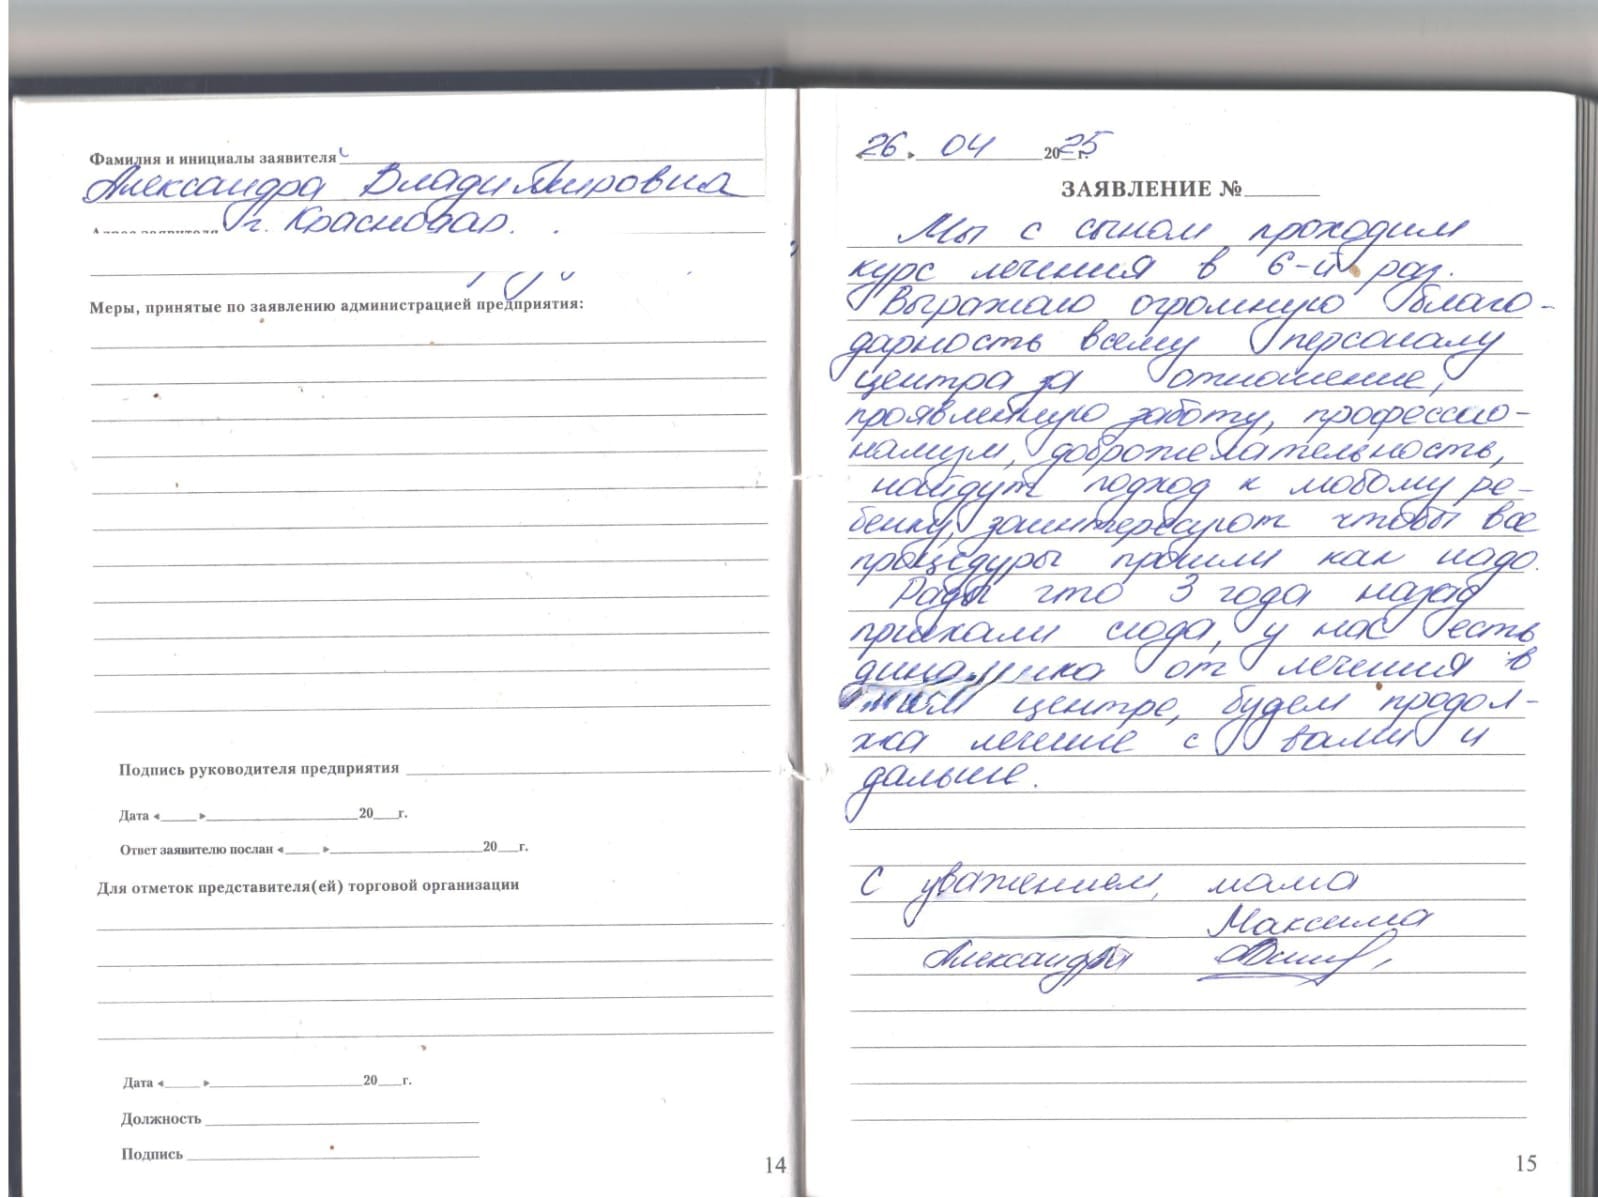 Фамилия и инициалы заявителя
Александра Владимировна
г. Краснодар.
Меры, принятые по заявлению администрацией предприятия:
Подпись руководителя предприятия
Дата «____»____20__г.
Ответ заявителю послан «____»____20__г.
Для отметок представителя(ей) торговой организации
Дата «____»____20__г.
Должность
Подпись
14
«26» 04 2025 г.
ЗАЯВЛЕНИЕ №
Мы с сыном проходим
курс лечения в 6-й раз.
Выражаю огромную благо-
дарность всему персоналу
центра за отношение,
проявленную заботу, профессио-
нализм, доброжелательность,
найдут подход к любому ре-
бенку, заинтересуют чтобы все
процедуры прошли как надо.
Рады что 3 года назад
приехали сюда, у нас есть
динамика от лечения в
этом центре, будем продол-
жа лечение с вами и
дальше.
С уважением, мама
Максима
Александра
15